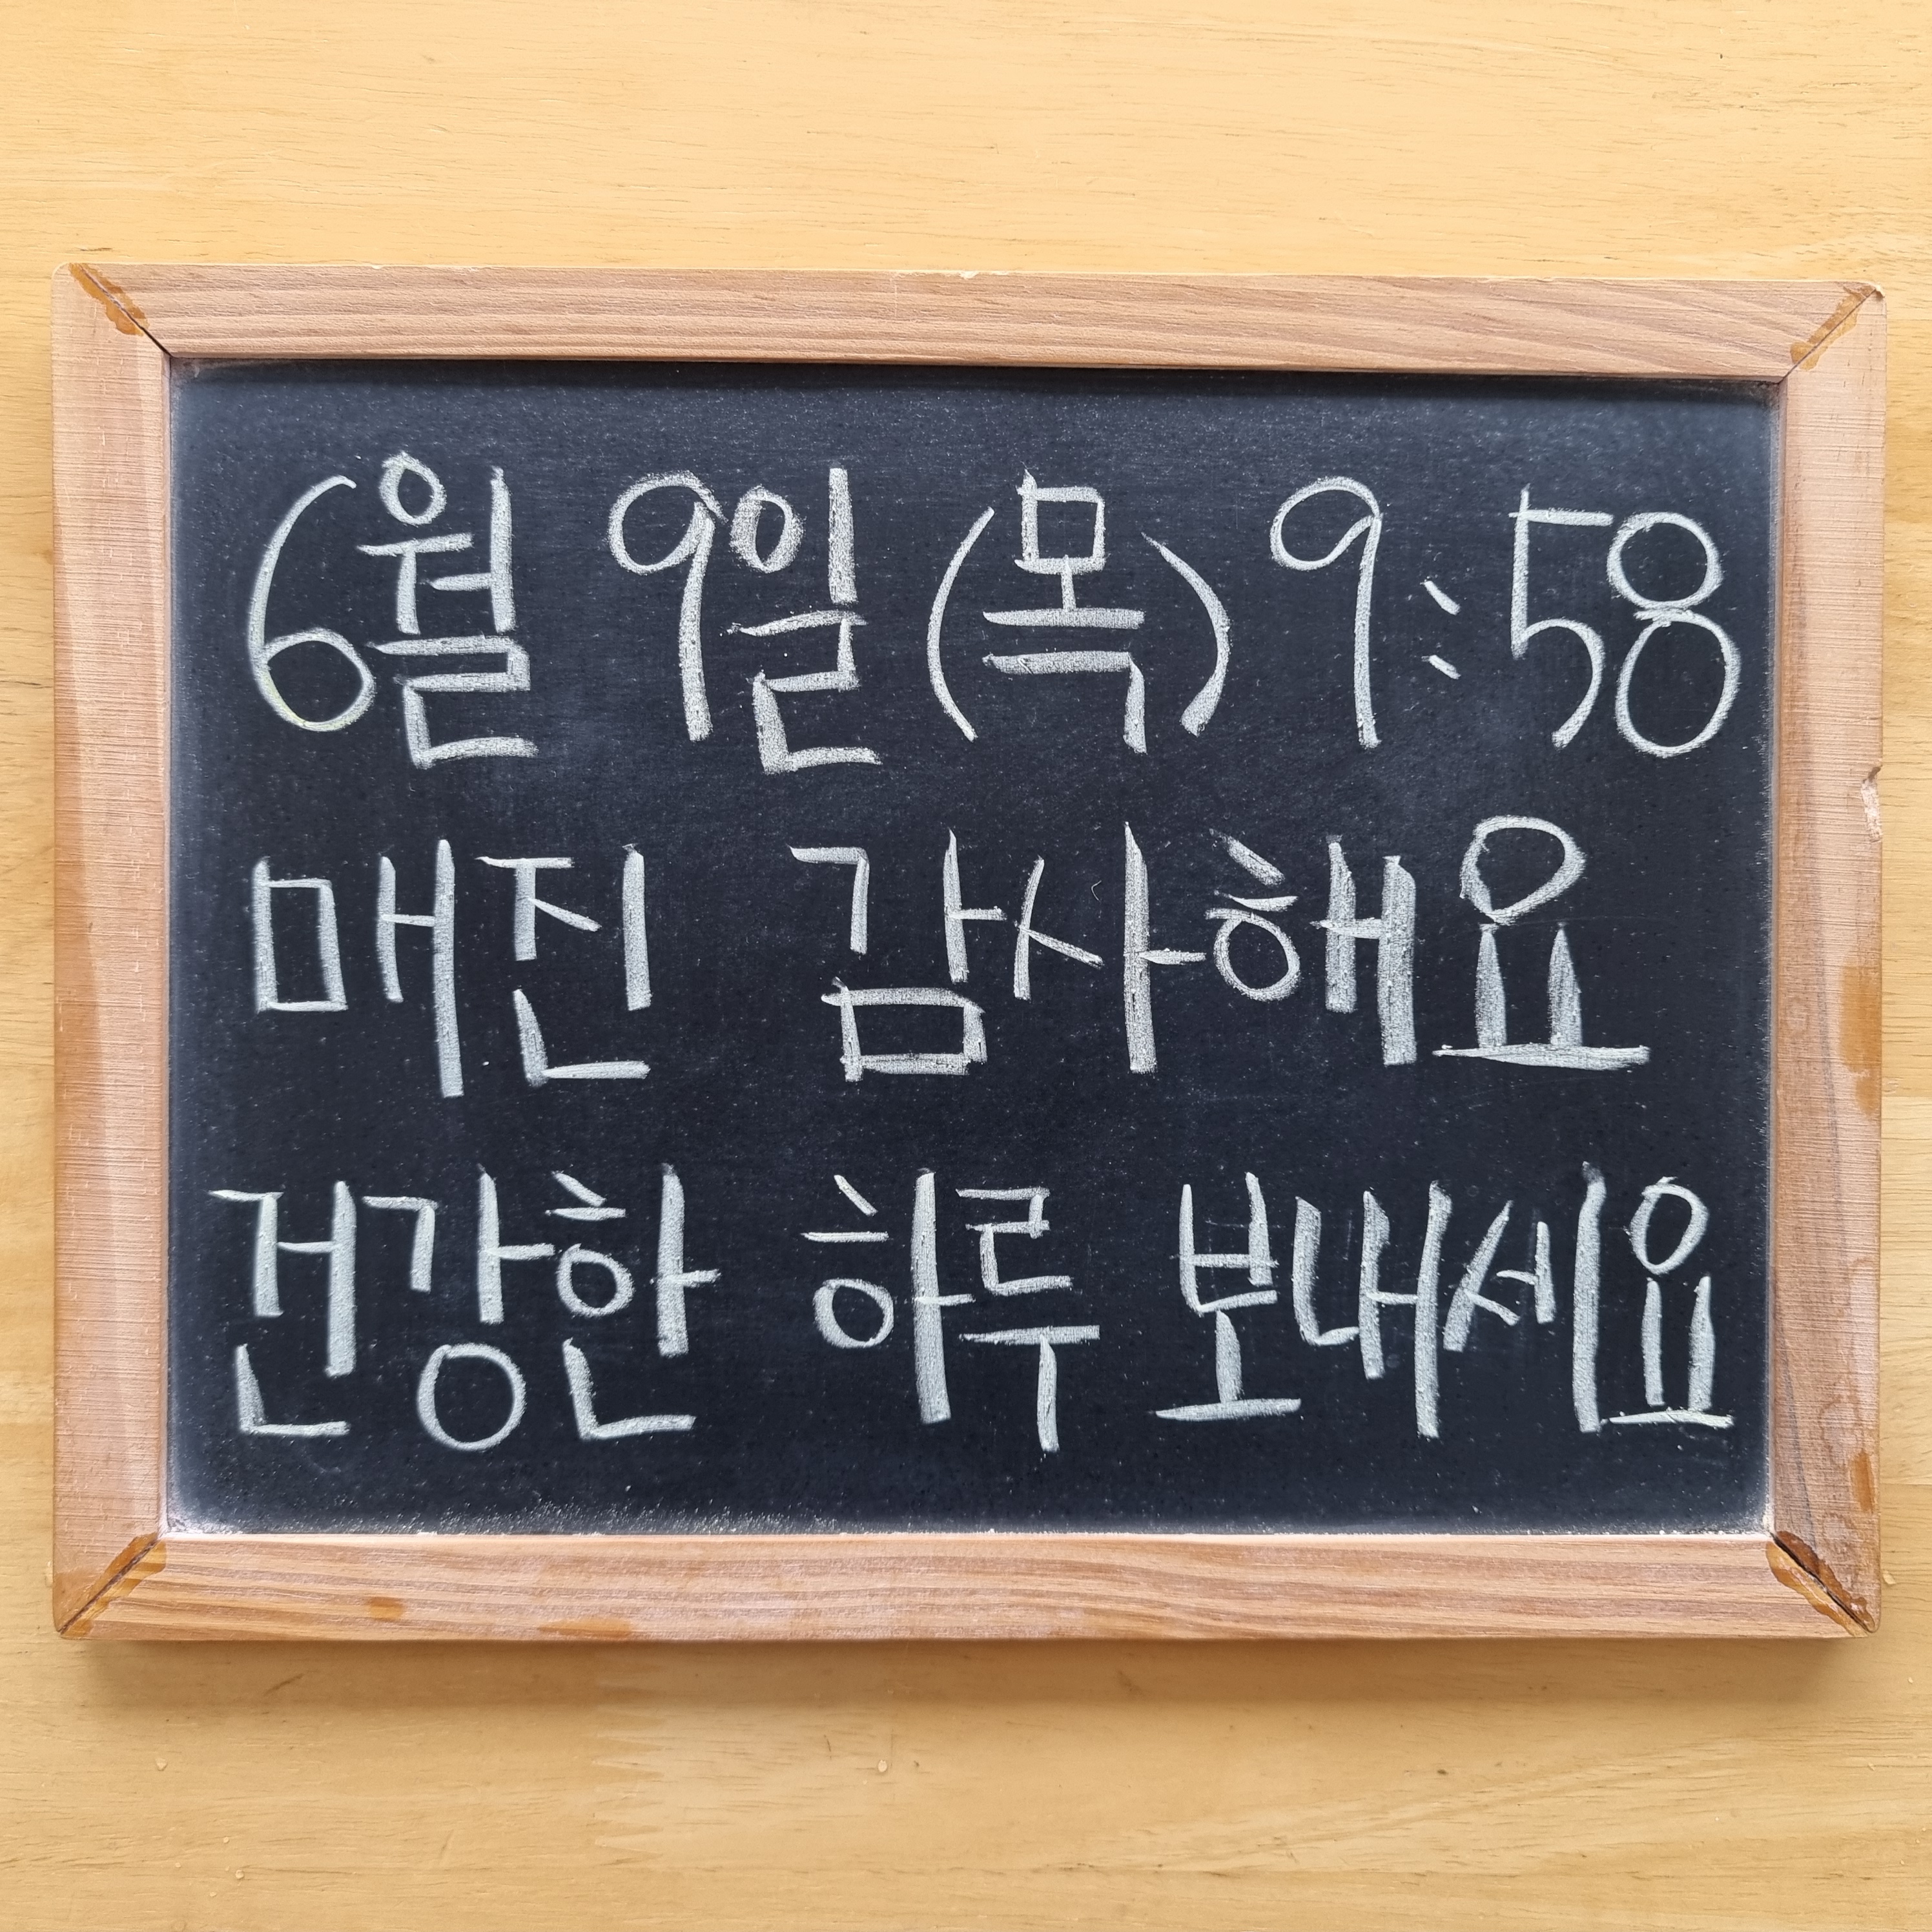 6월 9일 (목) 9:58
매진 감사해요
건강한 하루 보내세요